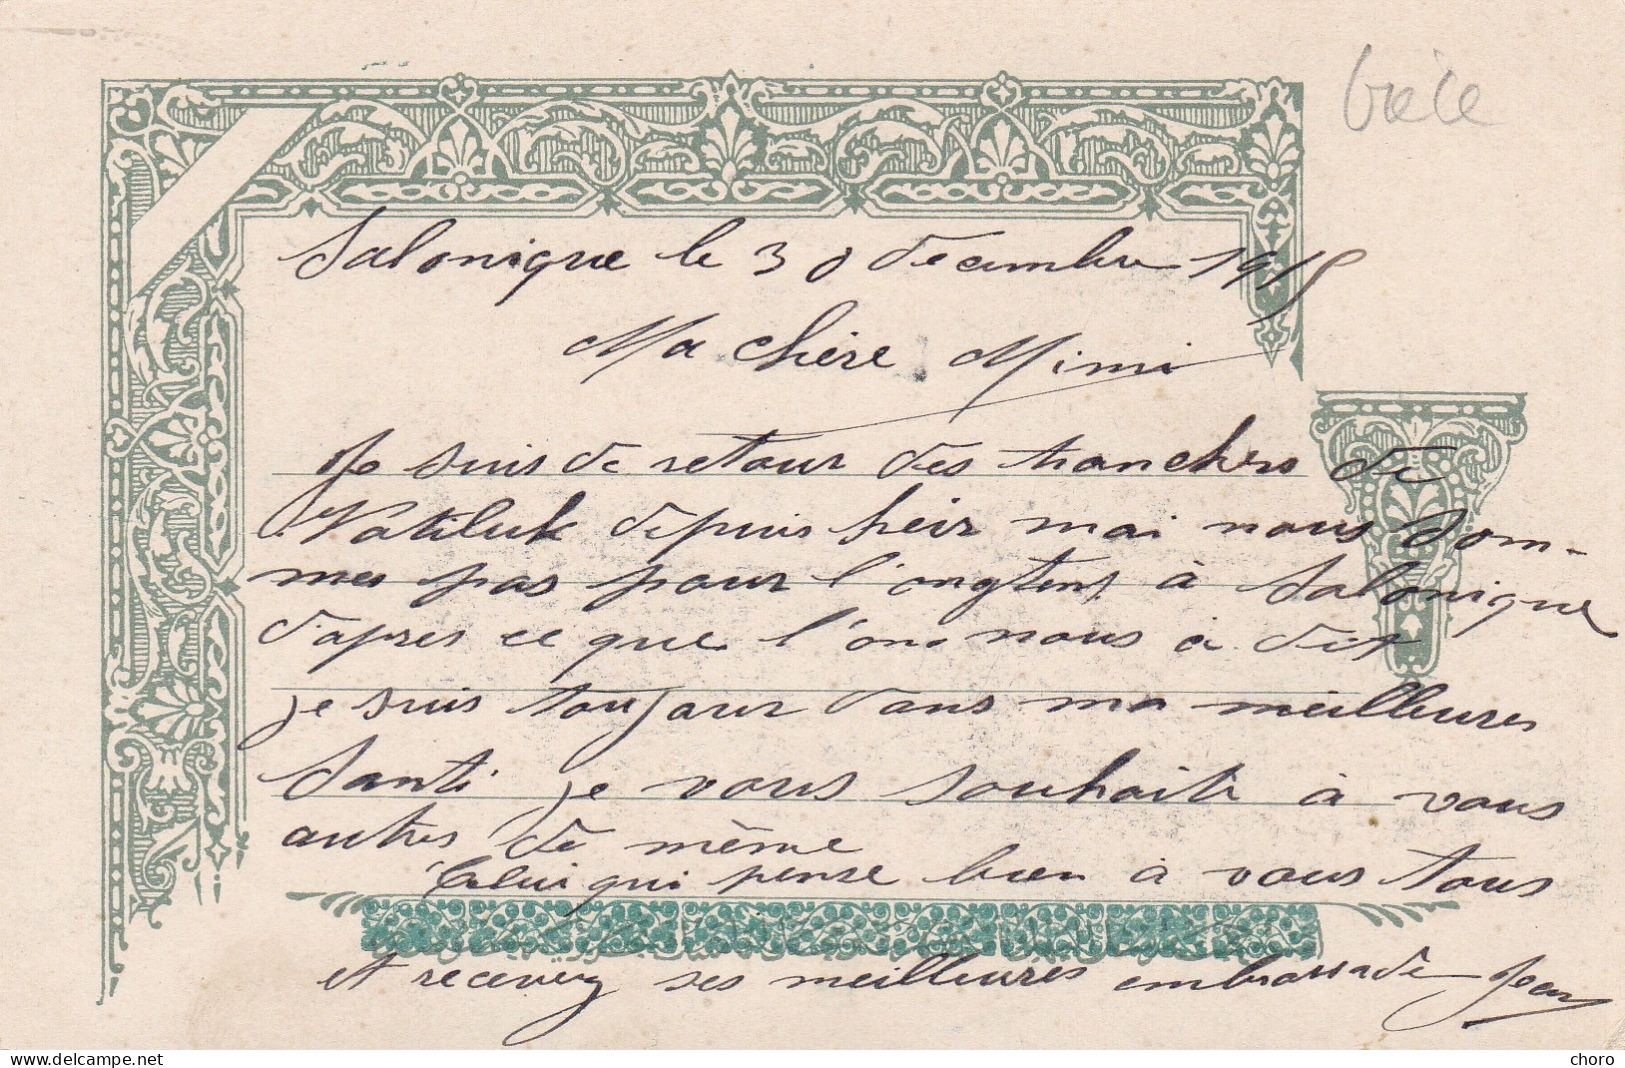 Grèce
Salonique le 30 décembre 1915
Ma chère Mimi
Je suis de retour des tranchers de
depuis heir mai nous som-
mes pas pour l'ongtens à Salonique
d'apres ce que l'on nous a dit
je suis toujour dans ma meilleures
Santé je vous souhaite à vous
autres de même
Celui qui pense bien à vous tous
et recevez ses meilleures embrassade Jean
www.delcampe.net
choro